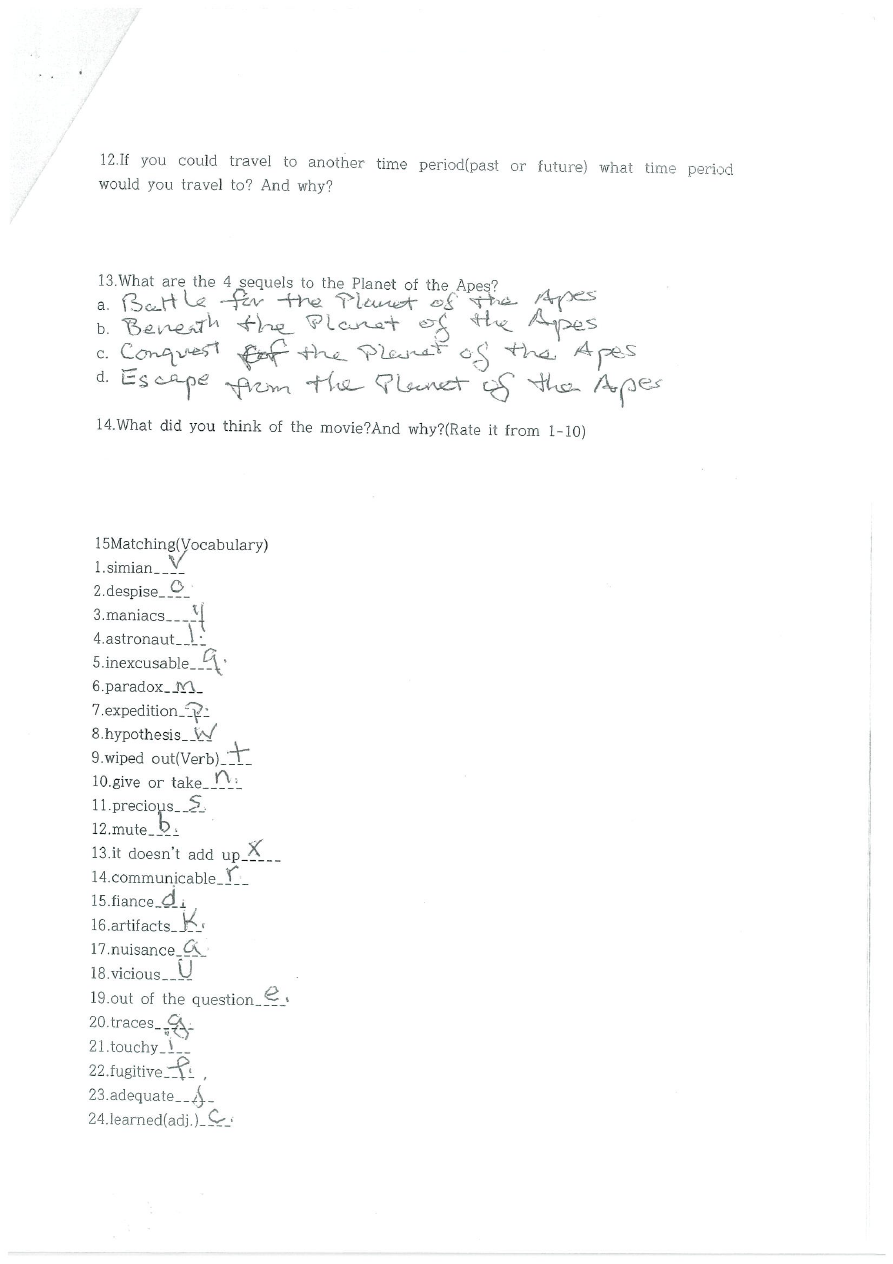 12.If you could travel to another time period(past or future) what time period
would you travel to? And why?
13.What are the 4 sequels to the Planet of the Apes?
a. Battle for the Planet of the Apes
b. Beneath the Planet of the Apes
c. Conquest of the Planet of the Apes
d. Escape from the Planet of the Apes
14.What did you think of the movie?And why?(Rate it from 1-10)
15Matching(Vocabulary)
1.simian V
2.despise o
3.maniacs
4.astronaut
5.inexcusable q.
6.paradox m
7.expedition p.
8.hypothesis W
9.wiped out(Verb) t
10.give or take n.
11.precious s.
12.mute b.
13.it doesn't add up X
14.communicable r.
15.fiance d.
16.artifacts K.
17.nuisance a.
18.vicious U
19.out of the question e.
20.traces g.
21.touchy i
22.fugitive f.
23.adequate j
24.learned(adj.) c.